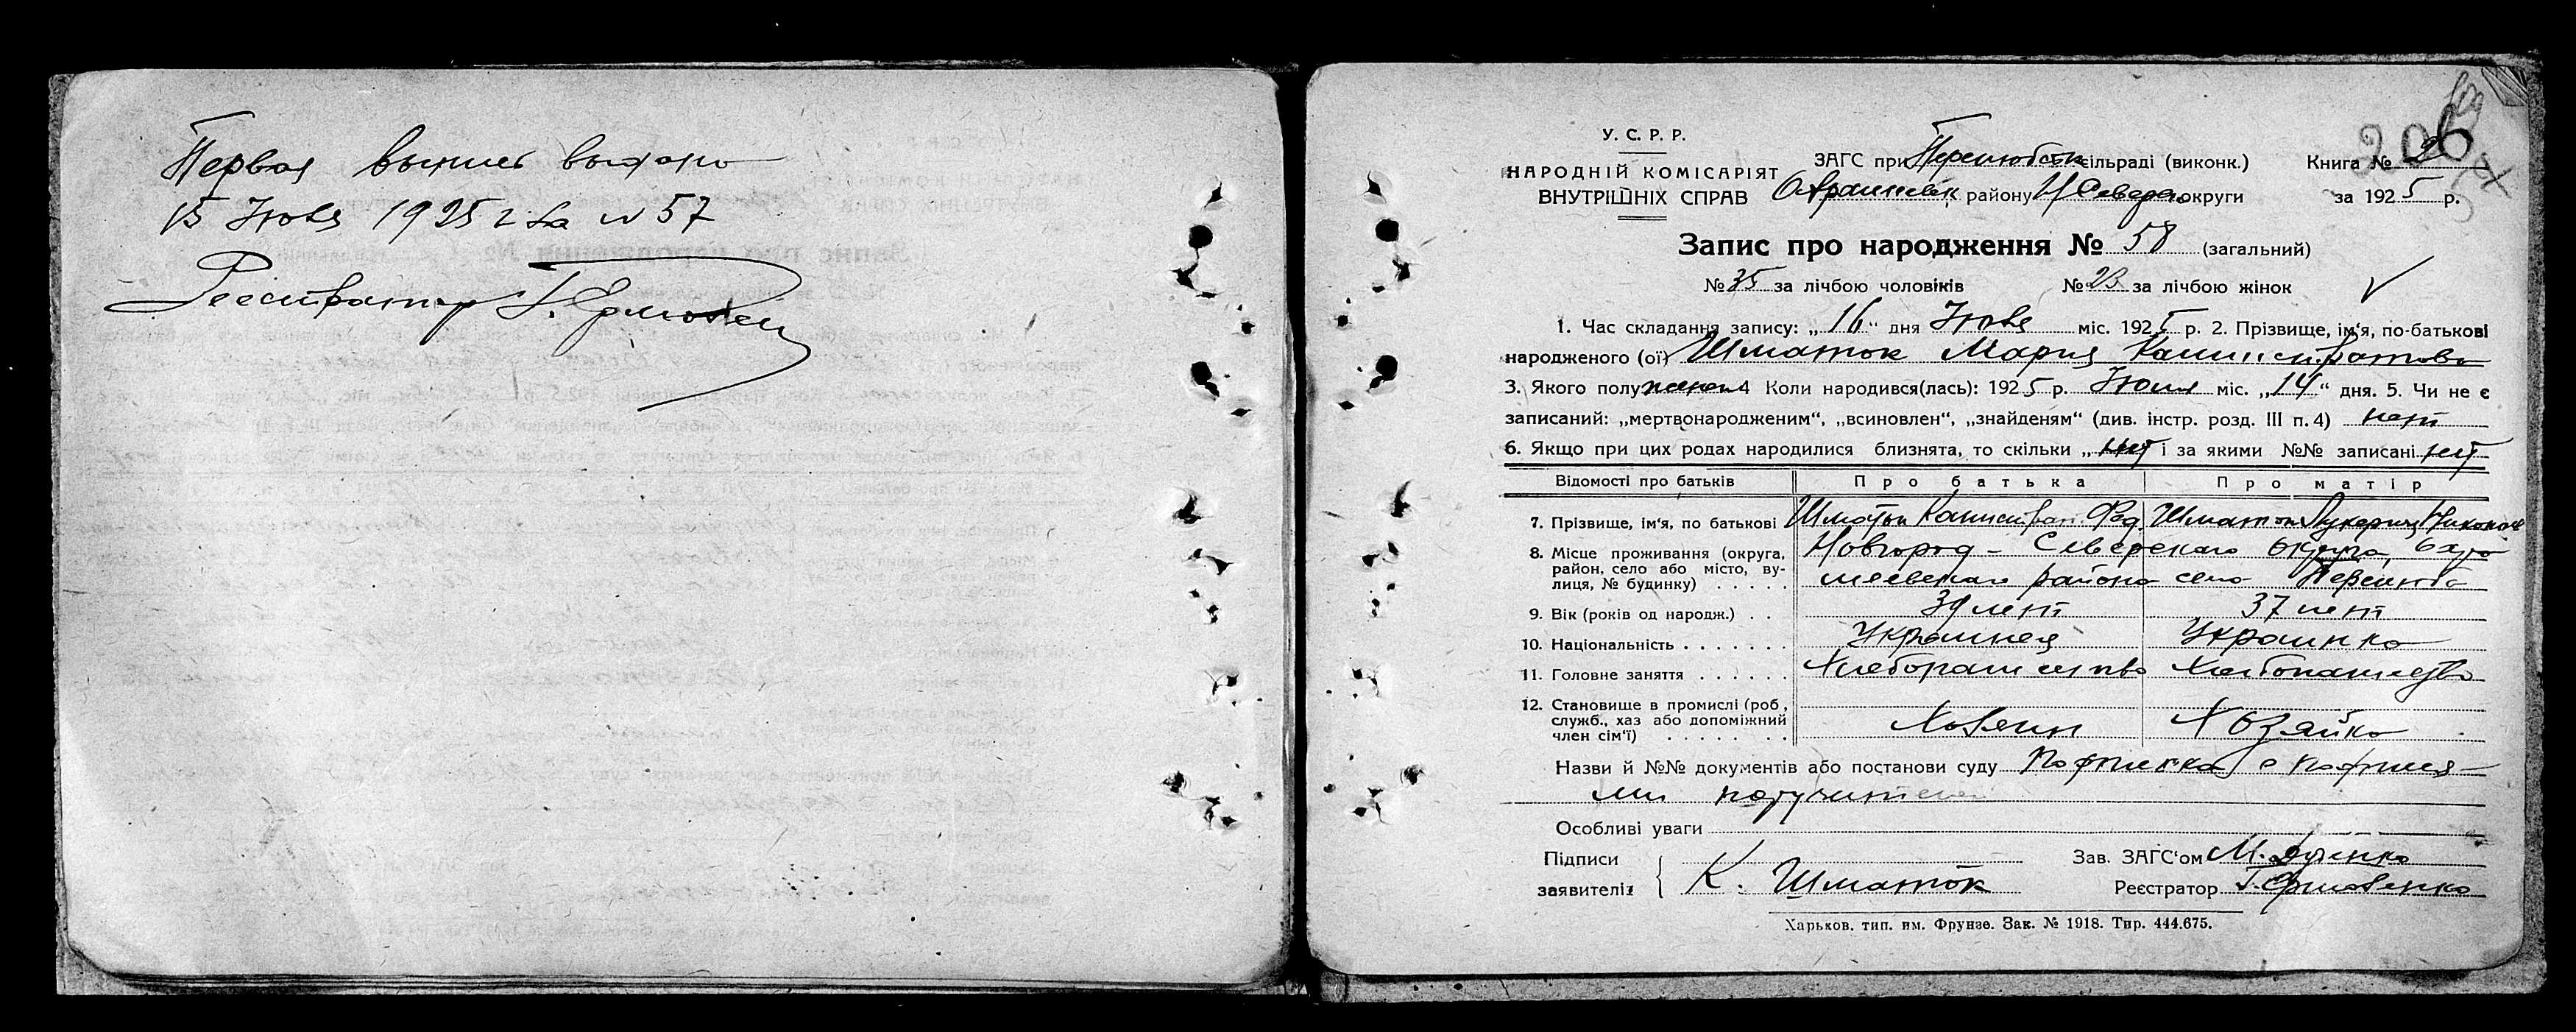 Первая выпись выдана
15 Июля 1925 г за № 57
Регистратор Г. Ермовен
206
У. С. Р. Р.
НАРОДНІЙ КОМІСАРІЯТ
ВНУТРІШНІХ СПРАВ
ЗАГС при Перелюбск сільраді (виконк.)
району Н Северск округи
Книга № 2
за 1925 р.
Запис про народження № 58 (загальний)
№ 35 за лічбою чоловіків № 23 за лічбою жінок
1. Час складання запису: „16“ дня Июля міс. 1925 р. 2. Прізвище, ім'я, по-батькові
народженого (ої) Шматок Мария Калистратова
3. Якого полу женск 4 Коли народився(лась): 1925 р. Июля міс. „14“ дня. 5. Чи не є
записаний: „мертвонародженим“, „всиновлен“, „знайденям“ (див. інстр. розд. III п. 4) нет
6. Якщо при цих родах народилися близнята, то скільки „нет і за якими №№ записані нет
Відомості про батьків Про батька Про матір
7. Прізвище, ім'я, по батькові Шматок Калистрат Фед. Шматок Лукерия Никонов
8. Місце проживання (округа, район, село або місто, вулиця, № будинку) Новгород-Северского округа,
района село Перелюб
9. Вік (років од народж.) 39 лет 37 лет
10. Національність Украинец Украинка
11. Головне заняття Хлебопашество Хлебопашество
12. Становище в промислі (роб., служб., хаз або допоміжний член сім'ї) Хозяин Хозяйка
Назви й №№ документів або постанови суду Подписка с подпися-
ми поручителей
Особливі уваги
Підписи
заявителів К. Шматок
Зав. ЗАГС'ом М.
Реєстратор Г.
Харьков. тип. им. Фрунзе. Зак. № 1918. Тир. 444.675.